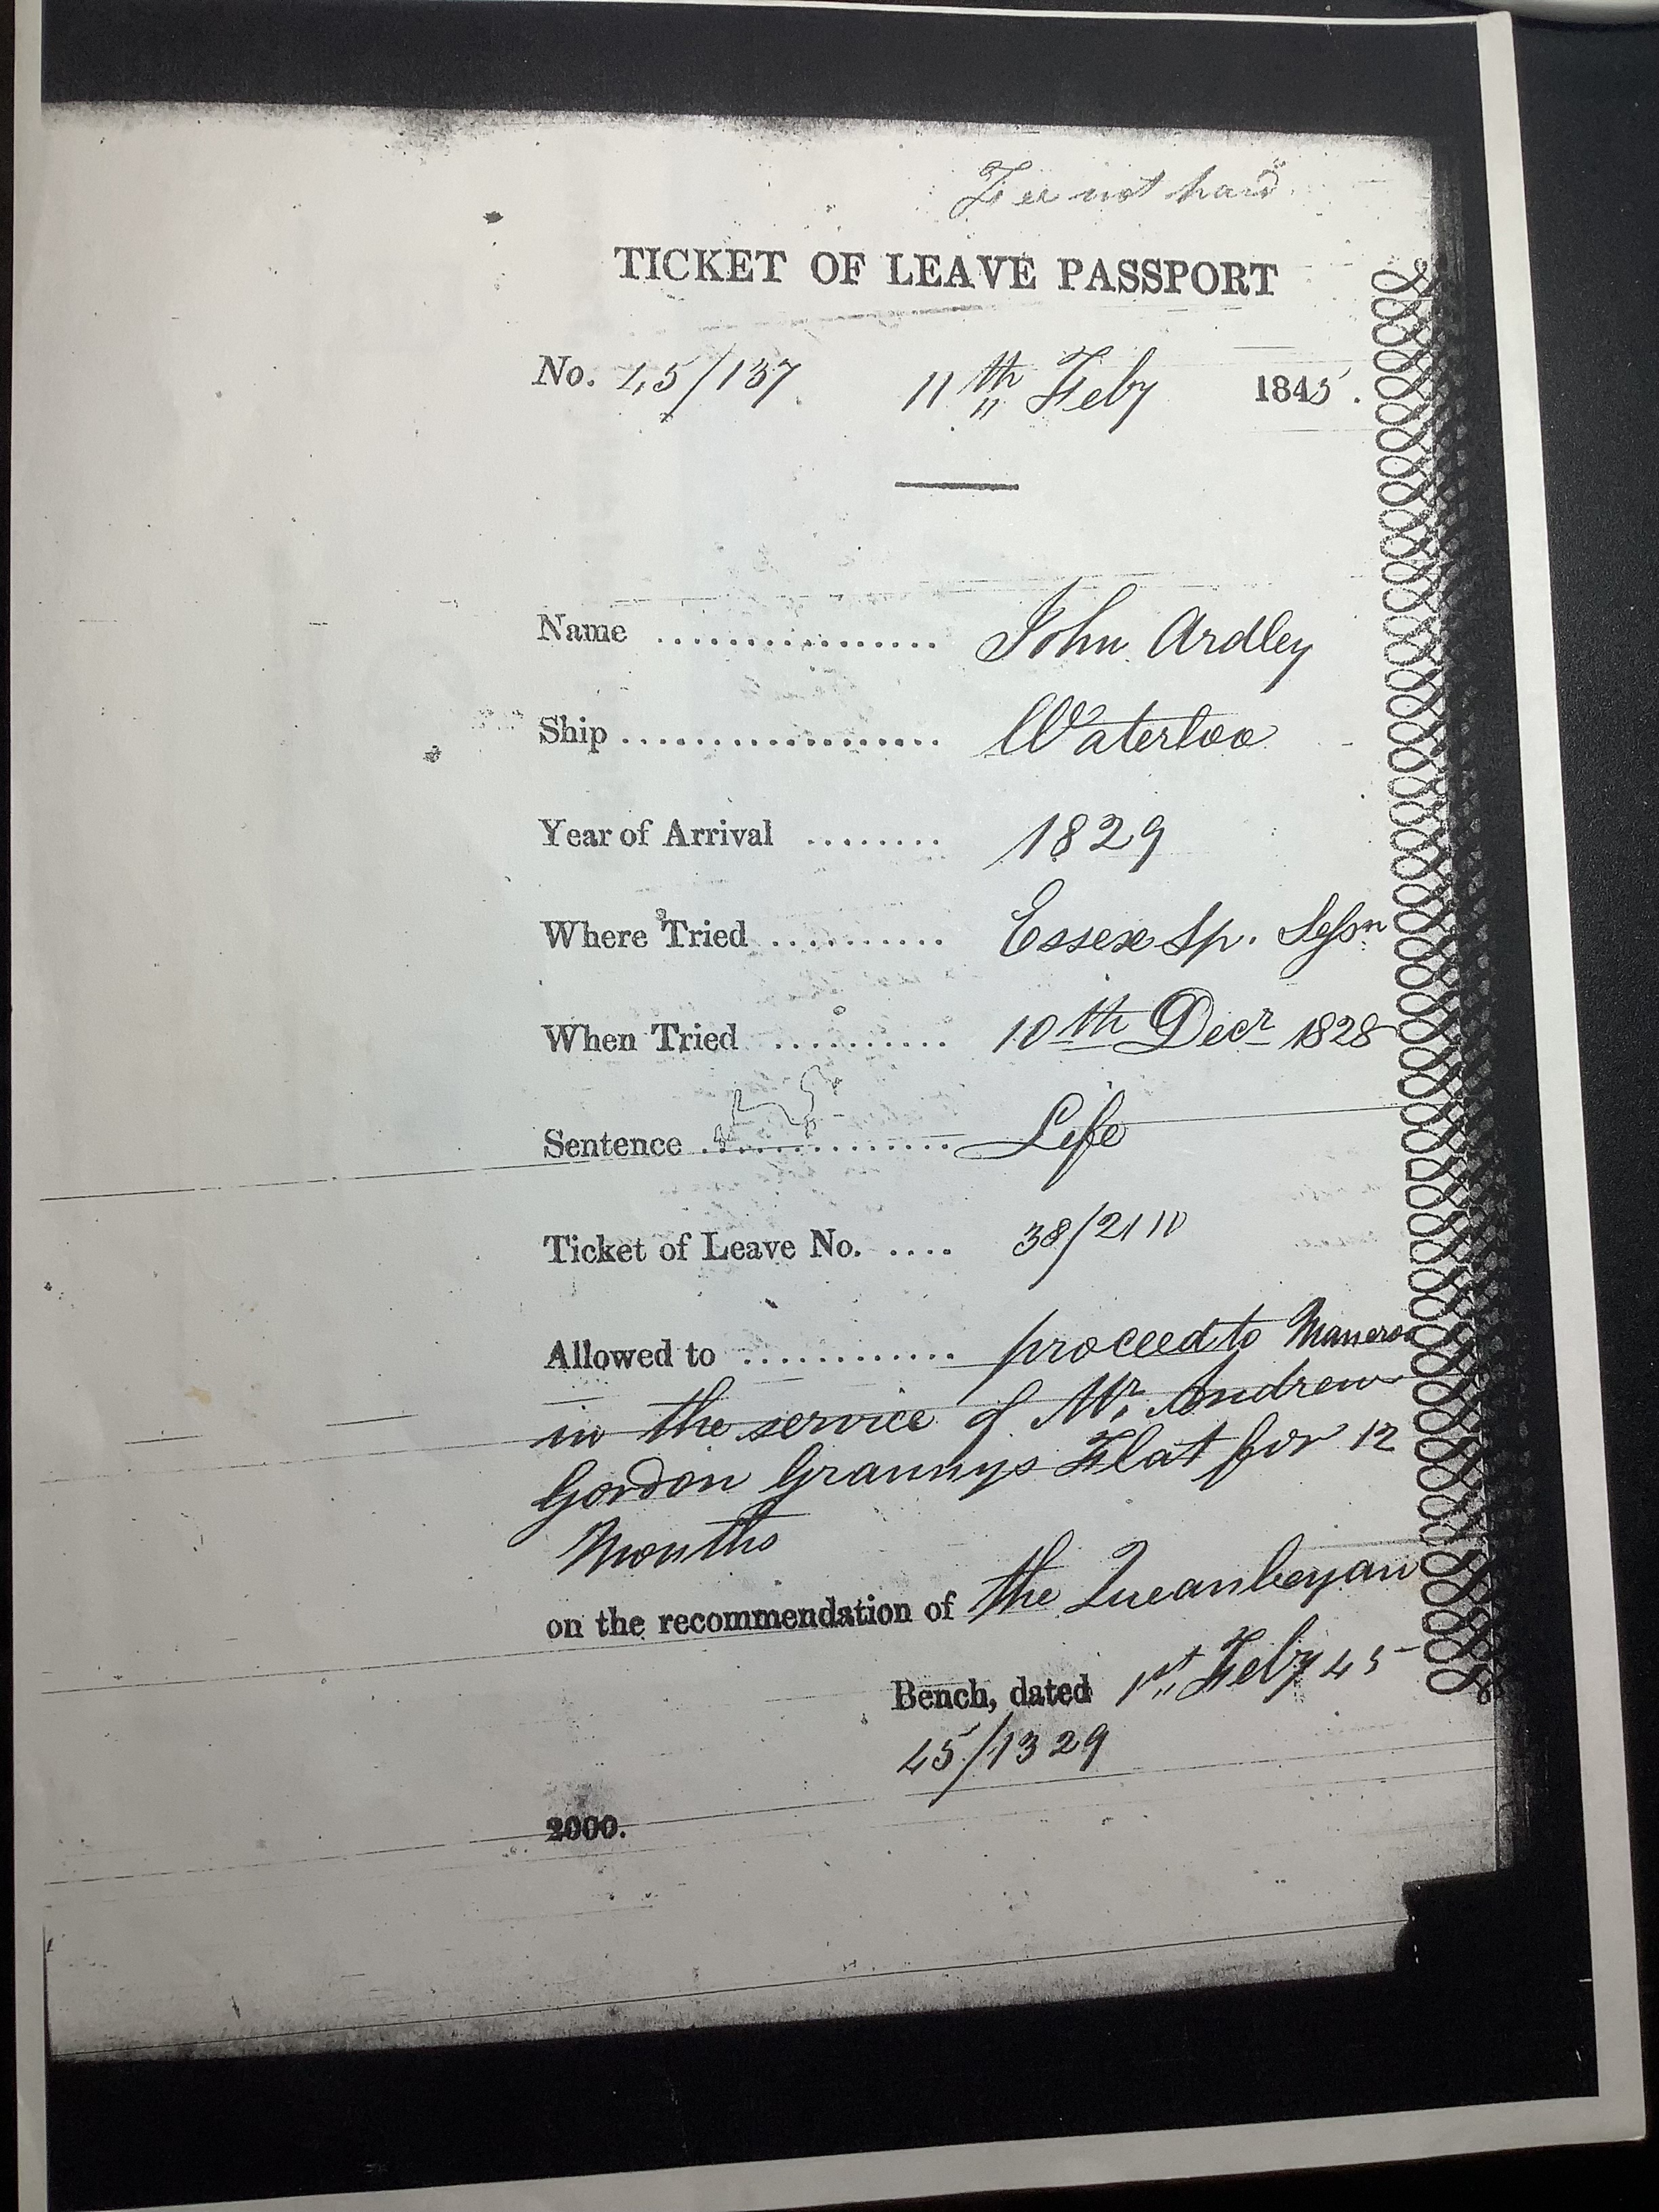 Fee not paid
TICKET OF LEAVE PASSPORT
No. 45/137 11th Feby 1845.
Name ................ John Ardley
Ship .................. Waterloo
Year of Arrival ........ 1829
Where Tried .......... Essex Sp. Sessn
When Tried .......... 10th Decr 1828
Sentence .............. Life
Ticket of Leave No. .... 38/2110
Allowed to ............ proceed to Maneroo
in the service of Mr. Andrew
Gordon Grannys Flat for 12
Months
on the recommendation of the Queanbeyan
Bench, dated 1st Feby 45
45/1329
2000.